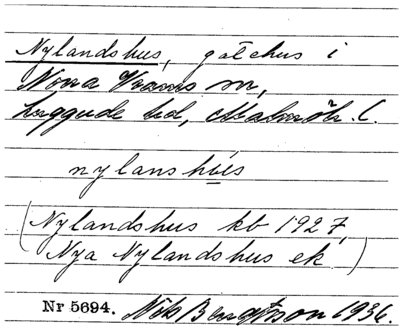 Nylandshus, gatehus i
Norra Vrams sn,
Luggude hd, Malmöh. l.
nylanshús
(Nylandshus kb 1927,
Nya Nylandshus ek)
Nr 5694. Nils Bengtsson 1936.